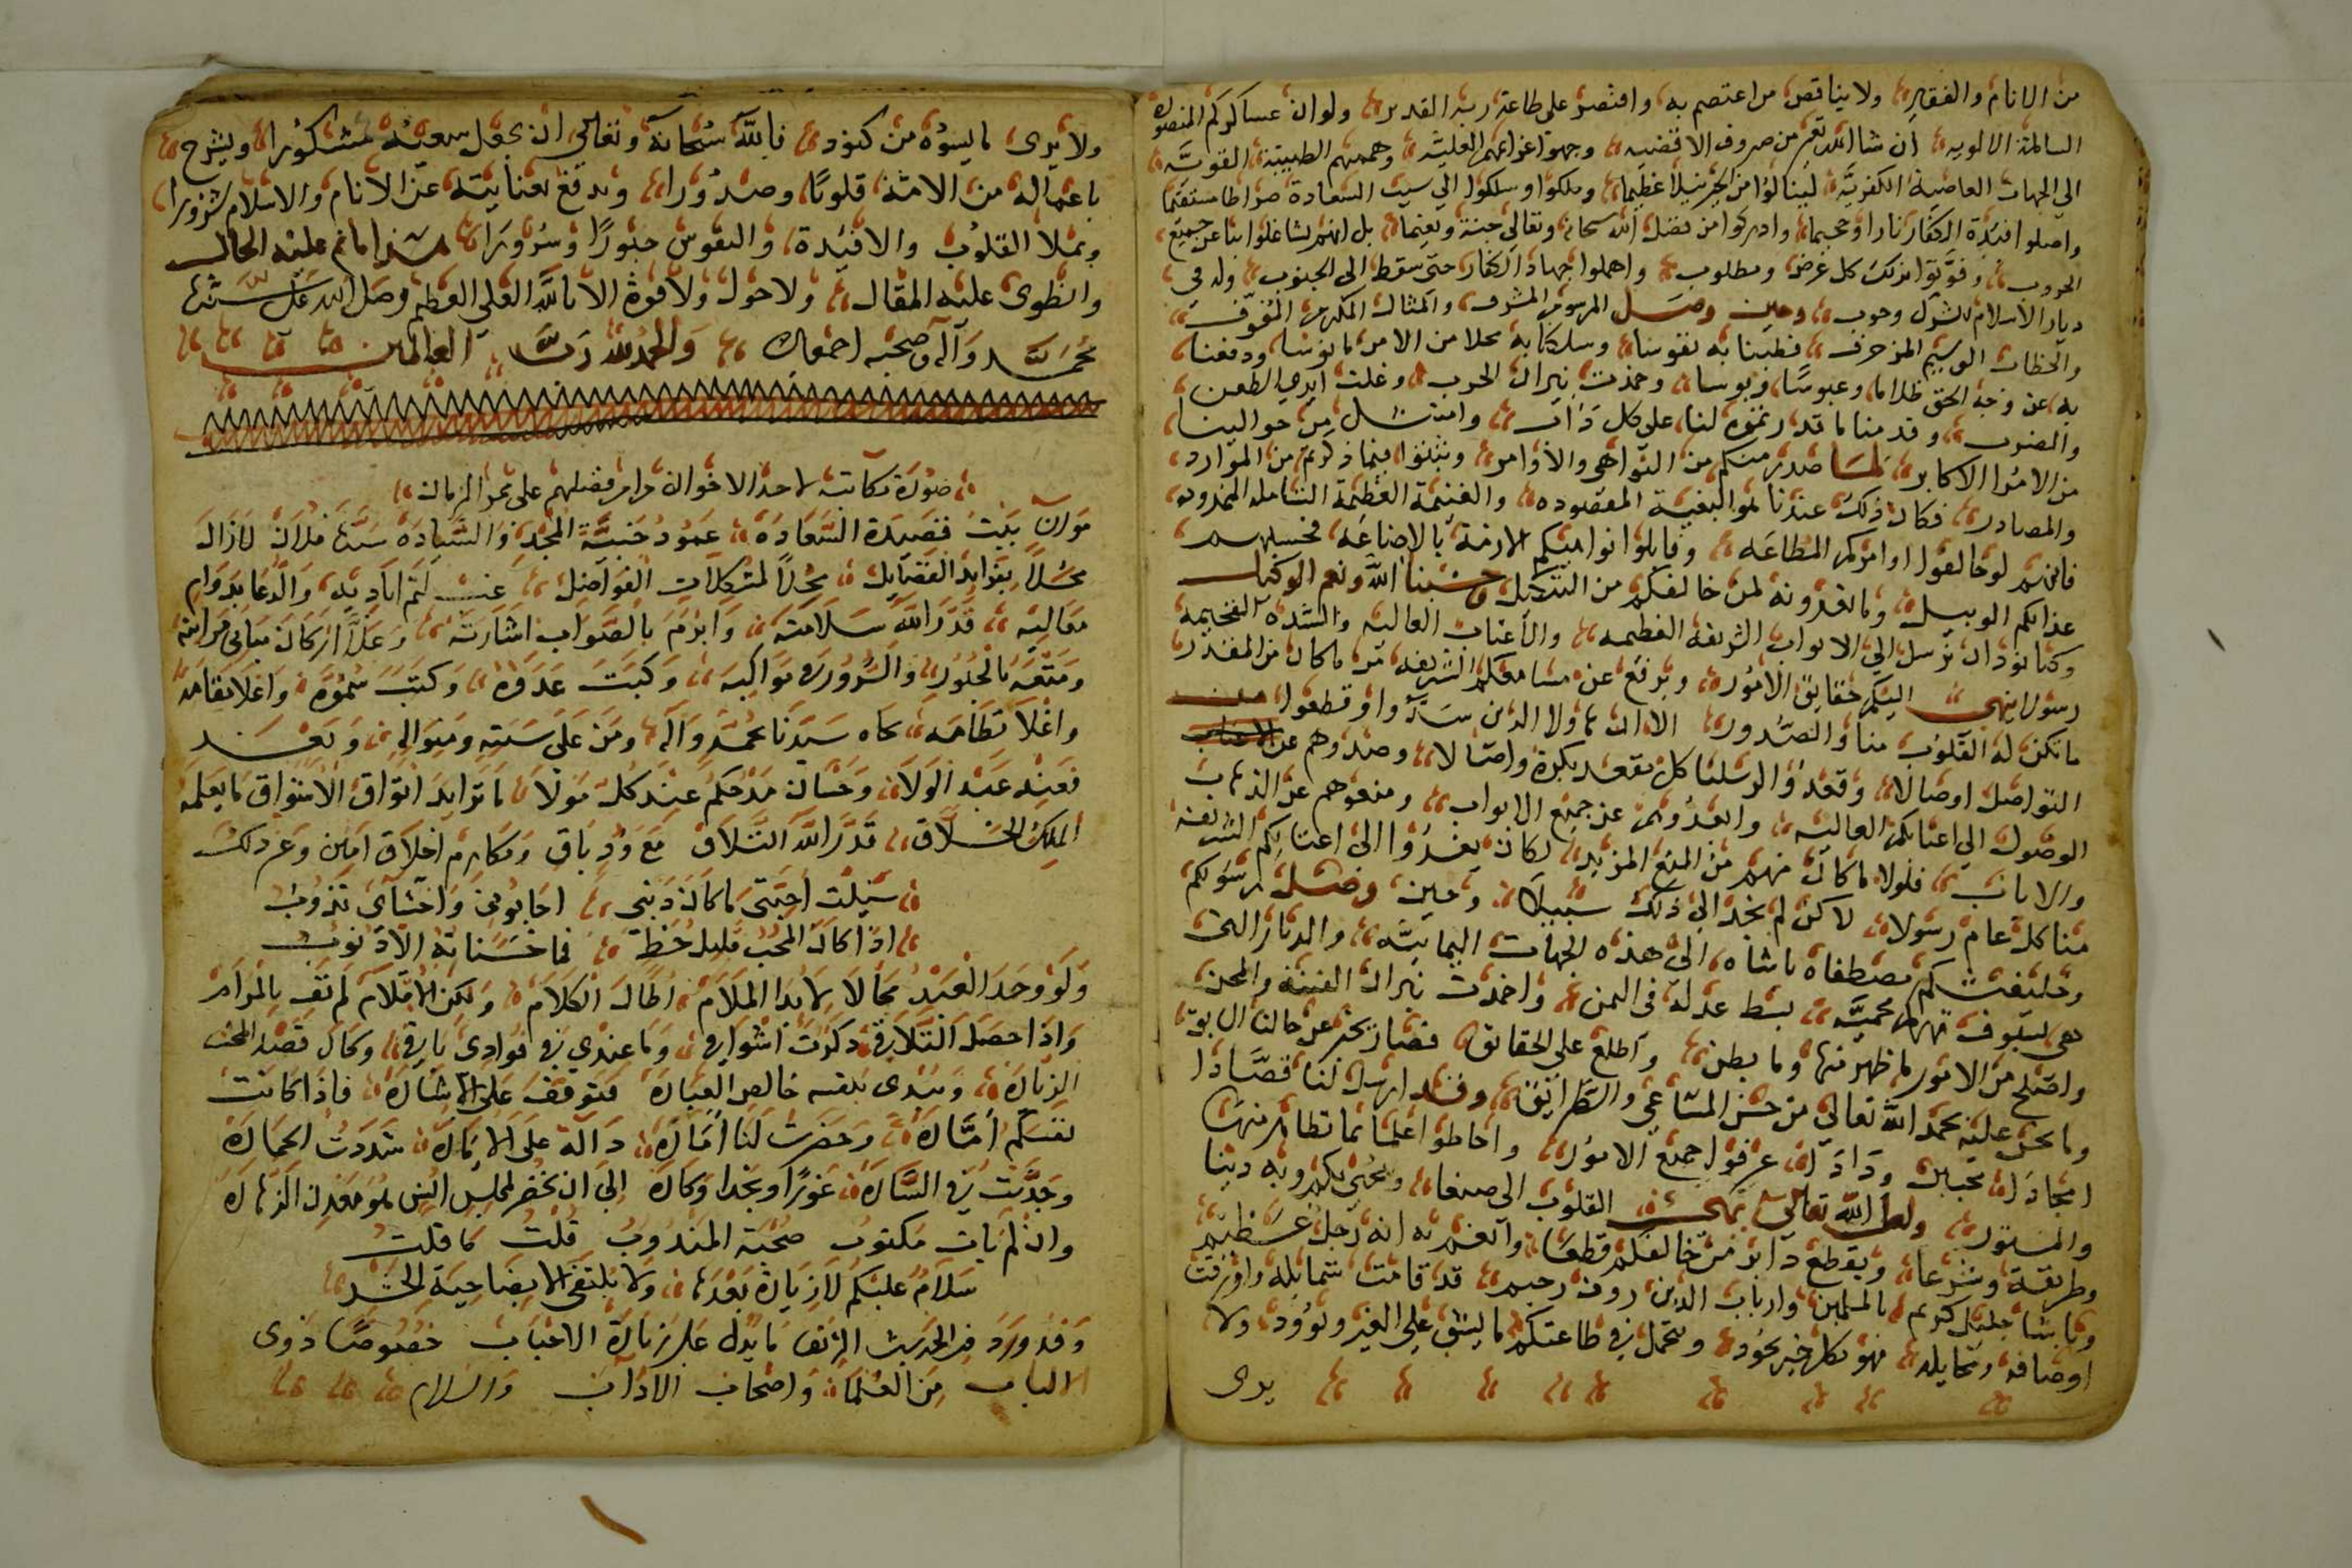 من الانام والفقير ولا يناقص من اعتصم به وافتصر على طاعة ربه القدير ولو ان عساكركم المنصوره
السالمة الالويه ان شا الله تعالى من صروف الاقضيه وجهوا عزايمهم العليّه وهممهم الطيبية القويّه
الى الجهات العاصية الكفريّه لينالوا من الخير نيلا عظيما وملكوا وسلكوا الى سبيت السعادة صراطا مستقيما
واصلوا افئدة الكفار نارا وجحيما وادركوا من فضل الله سبحانه وتعالى جنة ونعيما بل انهم تشاغلوا بنا عن جميع
الحروب وفوّتوا بذلك كل غرض ومطلوب واهملوا جهاد الكفار حتى سقط الى الجنوب وله في
ديار الاسلام شرك وحوب وحين وصل المرسوم المشرف والمثال المكرم المفوّف
والخطاب الوسيم المزخرف فطبنا به نفوسا وسلكنا به محلا من الامر مانوسا ودفعنا
به عن وجه الحق ظلاما وعبوسًا وبوسا وخمدت نيران الحرب وغلت ايدي الطعن
والضرب وقدمنا ما قد رنموه لنا على كل دان وامتثل من حوالينا
من الامرا الاكابر لما صدر منكم من النواهي والاوامر وثبتوا فيما ذكرتم من الموارد
والمصادر فكان ذلك عندنا هو البغية المقصوده والغنيمة العظيمة الشامله الممدوده
فانهم لو خالفوا اوامركم المطاعه وقابلوا نواهيكم الازمة بالاضاعه فحسبهم
عذابكم الوبيل وما تعدونه لمن خالفكم من التنكيل وحسبنا الله ونعم الوكيل
وكنا نود ان نرسل الى الابواب الشريفة العظيمه والاعتاب العاليه والسدة الفخيمه
رسولا ينهي اليكم حقايق الامور ويرفع عن مسامعكم الشريفه مرّ ما كان من المقدر
ما تكن له القلوب منا والصدور الا ان هاولا الذين سدّوا وقطعوا
التواصل اوصالا وقعدوا لرسلنا كل مقعد بكرة واصالا وصدوهم عن الاعتاب
الوصول الى اعتابكم العاليه وابعدوهم عن جميع الابواب ومنعوهم عن الذهاب
والاياب فلولا ما كان منهم من المنع المزيد لكان يغدوا الى اعتابكم الشريفة
منا كل عام رسولا لاكن لم نجد الى ذلك سبيلا وحين وصل رسولكم
وخليفتكم مصطفاه باشاه الى هذه الجهات اليمانيّه والديار التي
هي لسيوف قهركم محميّه بسط عدله في اليمن واخمدت نيران الفتنة والمحن
واصلح من الامور ما ظهر منها وما بطن واطلع على الحقايق فصار يخبر عن حالنا السابق
وما نحن عليه بحمد الله تعالى من حسن المساعي والطرايق وقد ارسل لنا قصّادا
امجادا محبين ودادا عرفوا جميع الامور واحاطوا علما بما تظاهر منها
والمستور ولعل الله تعالى يمحن القلوب الى صنعا ويحيى بكم وبه دينا
وطريقة وشرعا ويقطع دابر من خالفكم قطعا وانعم به انه رجل عظيم
وباشا جليل كريم بالمسلمين وارباب الدين روف رحيم قد قامت شمايله واوزنت
اوصافه وتخايله فهو بكل خير يجود ويتحمل في طاعتكم ما يشق على الغير ويؤود ولا
يرى
ولا يرى ما يسوه من كنود فالله سبحانه وتعالى ان يجعل سعيه مشكورا ويشرح
باعماله من الامة قلوبًا وصدورا ويدفع بعنايته عن الانام والاسلام شرورا
ويملا القلوب والافئدة والنفوس حبورًا وسرورا هذا ما تم عليه الحال
وانطوى عليه المقال ولا حول ولا قوة الا بالله العلي العظيم وصل الله على سيدنا
محمد وآله وصحبه اجمعين والحمد لله رب العالمين
صورة مكاتبة لاحد الاخوان دام فضلهم على ممر الزمان
بيت قصيدة السعادة عمود خبيّة المجد والسيادة سيدنا فلان لازال
محلاً بفرايد الفضايل محلاً لمشكلات الفواضل غب لثم اياديه والدعا بدوام
معاليه قدر الله سلامته وابرم بالصواب اشارته وعلا اركان مباني مراتبه
ومتعه بالحبور والسرور مواكبه وكبت عدوه وكتب سموّه واعلا مقامه
واعلا نظامه بجاه سيدنا محمد وآله ومن على سنته ومنواله وبعد
فعند عبد الولا وحسان مدحكم عند كل مولا ما تزايد اتواق الاشواق ما يعلمه
الملك الخلاق قدر الله التلاق مع ود باق ومكارم اخلاق امين وعن ذلك
سيلت احبتي ما كان ذنبي اجابوني واحشاي تذوب
اذا كان المحب قليل حظ فما حسناته الا ذنوب
ولو وجد العبد مجالا لابدا الملام اطال الكلام ولكن الاقلام لم تف بالمرام
واذا حصل التلاقي ذكرت اشواقي وما عندي في فوادي باقي وكان قصد المحب
الزياره ويبدي بنفسه خالص العبارة فتوقف على الاشاره فاذا كانت
نفسكم أمّاره وحضرت لنا أماره دالة على الاماره شددت الحماره
وجديت في السّاره غورًا ونجدا وكاره الى ان نحضر لمجلس انس هو معدن الزهاره
وان لم يات مكتوب صحبة المندوب قلت كما قلت
سلام عليكم لا زيارة بعدها ولا نلتقي الا بضاحية الحشد
وقد ورد في الحديث الشريف ما يدل على زيارة الاحباب خصوصًا ذوى
الالباب من العلما واصحاب الاداب والسلام